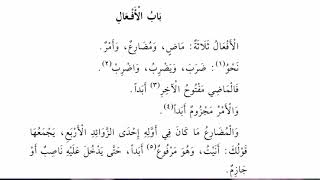 بَابُ الْأَفْعَالِ
الْأَفْعَالُ ثَلَاثَةٌ: مَاضٍ، وَمُضَارِعٌ، وَأَمْرٌ.
نَحْوُ(١): ضَرَبَ، وَيَضْرِبُ، وَاضْرِبْ(٢).
فَالْمَاضِي مَفْتُوحُ الْآخِرِ(٣) أَبَداً.
وَالْأَمْرُ مَجْزُومٌ أَبَداً(٤).
وَالْمُضَارِعُ مَا كَانَ فِي أَوَّلِهِ إِحْدَى الزَّوَائِدِ الْأَرْبَعِ، يَجْمَعُهَا
قَوْلُكَ: أَنَيْتُ، وَهُوَ مَرْفُوعٌ(٥) أَبَداً، حَتَّى يَدْخُلَ عَلَيْهِ نَاصِبٌ أَوْ
جَازِمٌ.